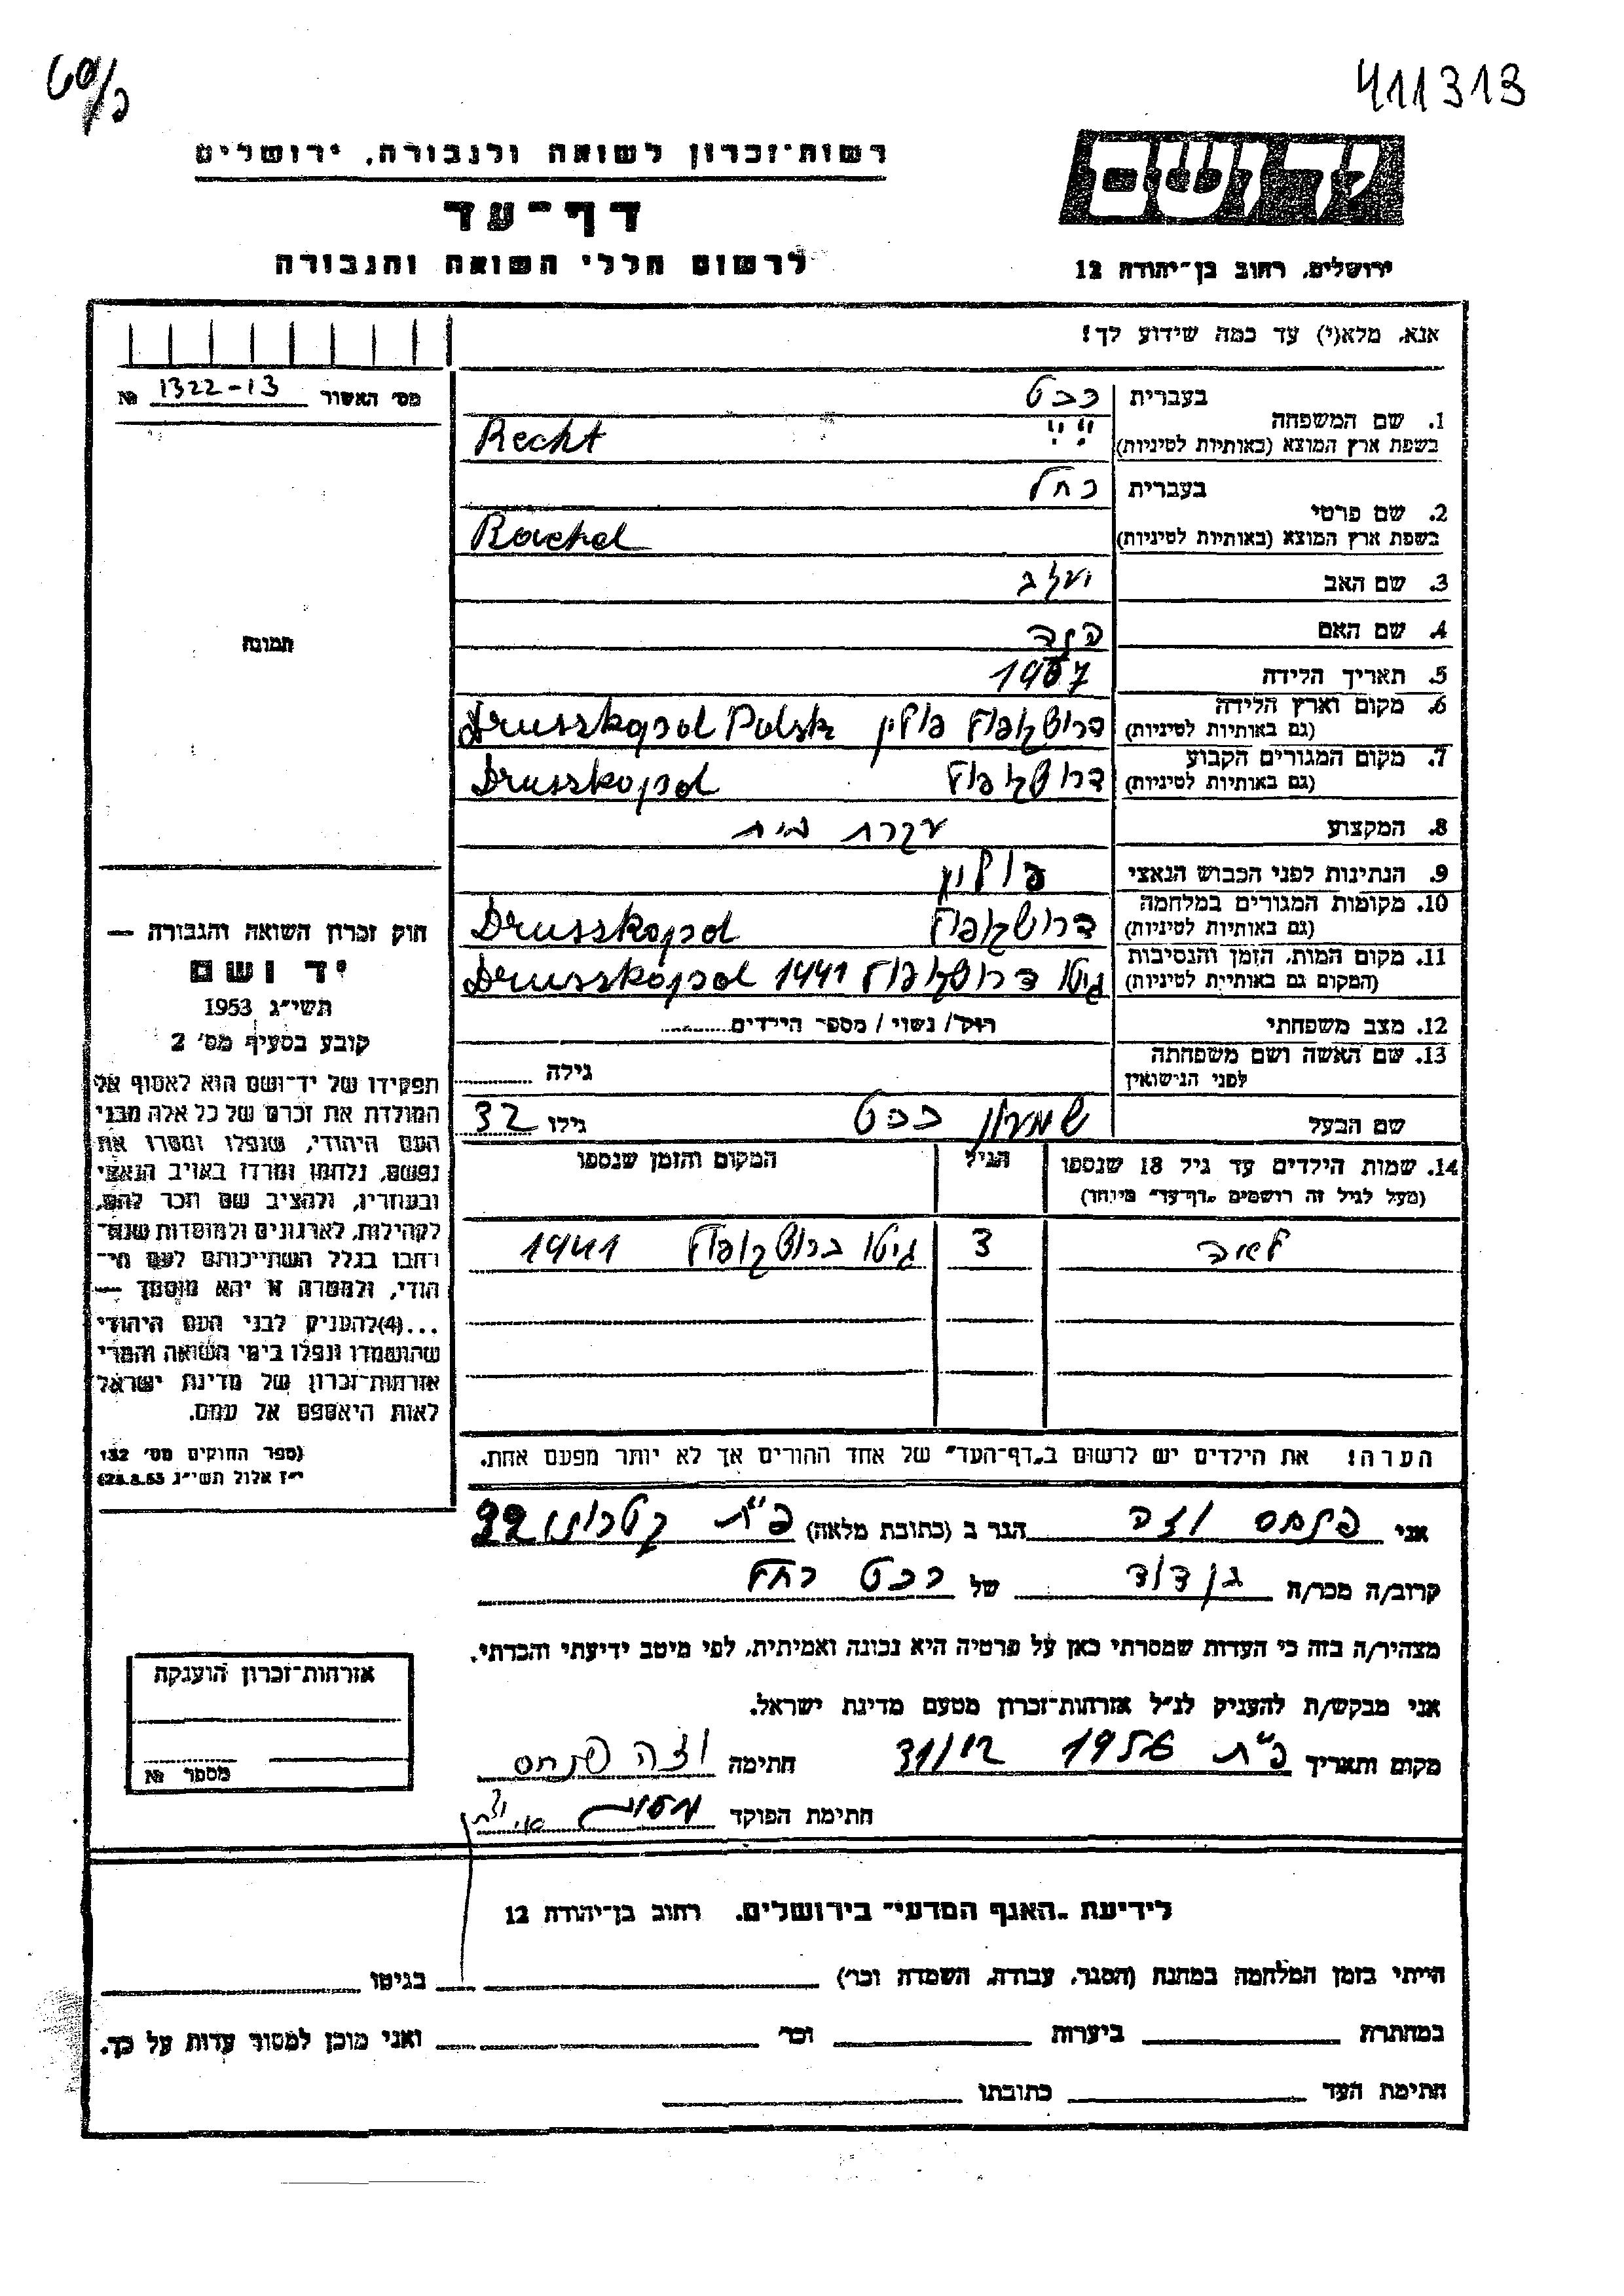 411313
רשות־זכרון לשואה ולגבורה, ירושלים
יד ושם
דף־עד
לרשום חללי השואה והגבורה
ירושלים, רחוב בן־יהודה 12
אנא, מלא(י) עד כמה שידוע לך!
מס׳ האשור 1322-13 №
1. שם המשפחה בעברית רכט
בשפת ארץ המוצא (באותיות לטיניות) Recht
2. שם פרטי בעברית רחל
בשפת ארץ המוצא (באותיות לטיניות) Rachel
3. שם האב
4. שם האם
5. תאריך הלידה 1907
6. מקום וארץ הלידה דרושקופול פולין Druszkopol Polsk
(גם באותיות לטיניות)
7. מקום המגורים הקבוע דרושקופול Druszkopol
(גם באותיות לטיניות)
8. המקצוע עקרת בית
9. הנתינות לפני הכבוש הנאצי פולין
10. מקומות המגורים במלחמה דרושקופול Drusskopol
(גם באותיות לטיניות)
11. מקום המות, הזמן והנסיבות גיטו דרושקופול 1941 Drusskopol
(המקום גם באותיות לטיניות)
12. מצב משפחתי רוק/ נשוי / מספר הילדים
13. שם האשה ושם משפחתה
לפני הנישואין גילה
שם הבעל שמעון רכט גילו 32
14. שמות הילדים עד גיל 18 שנספו הגיל המקום והזמן שנספו
(מעל לגיל זה רושמים „דף־עד״ מיוחד)
ליאיב 3 גיטו ברושקופול 1941
הערה! את הילדים יש לרשום ב„דף־העד״ של אחד ההורים אך לא יותר מפעם אחת.
תמונה
חוק זכרון השואה והגבורה —
יד ושם
תשי״ג 1953
קובע בסעיף מס׳ 2
תפקידו של יד־ושם הוא לאסוף אל
המולדת את זכרם של כל אלה מבני
העם היהודי, שנפלו ומסרו את
נפשם, נלחמו ומרדו באויב הנאצי
ובעוזריו, ולהציב שם וזכר להם,
לקהילות, לארגונים ולמוסדות שנח־
רבו בגלל השתייכותם לעם הי־
הודי, ולמטרה זו יהא מוסמך —
...(4)להעניק לבני העם היהודי
שהושמדו ונפלו בימי השואה והמרי
אזרחות־זכרון של מדינת ישראל
לאות היאספם אל עמם.
(ספר החוקים מס׳ 132
י״ז אלול תשי״ג 28.8.53)
אני פנחס וזה הגר ב (כתובת מלאה) פ״ת 22
קרוב/ה מכר/ה בן דוד של רכט רחל
מצהיר/ה בזה כי העדות שמסרתי כאן על פרטיה היא נכונה ואמיתית, לפי מיטב ידיעתי והכרתי.
אני מבקש/ת להעניק לנ״ל אזרחות־זכרון מטעם מדינת ישראל.
מקום ותאריך פ״ת 1956 31/12 חתימה וזה פנחס
חתימת הפוקד
אזרחות־זכרון הוענקה
מספר №
לידיעת „האגף המדעי״ בירושלים. רחוב בן־יהודה 12
הייתי בזמן המלחמה במחנה (הסגר, עבודה, השמדה וכו׳) בגיטו
במחתרת ביערות וכו׳ ואני מוכן למסור עדות על כך.
חתימת העד כתובתו